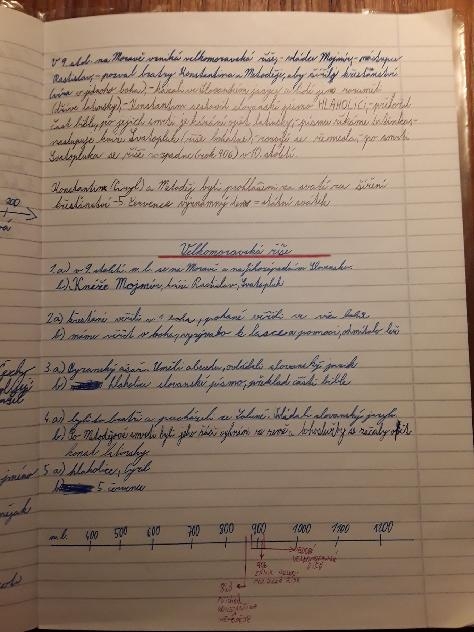 V 9. stol. na Moravě vzniká velkomoravská říše, - vládce Mojmír, - nástupce
Rastislav, - pozval bratry Konstantina a Metoděje, aby šířili křesťanství
(víra v jednoho boha), - kázali ve slovanském jazyce a lidé jim rozuměli
(dříve latinsky), - Konstantin sestavil slovanské písmo HLAHOLICI, - přeložil
část bible, po jejich smrti je kázání opět latinsky, - písmu říkáme latinka, -
nastupuje kníže Svatopluk (říše bohatla), - rozvíjí se řemesla, - po smrti
Svatopluka se říše rozpadne (rok 906) v 10. století.
Konstantin (Cyril) a Metoděj byli prohlášeni za svaté za šíření
křesťanství - 5. července významný den = státní svátek
Velkomoravská říše
1. a) v 9. století n. l. se na Moravě a na jihozápadním Slovensku
b) Kníže Mojmír, kníže Rastislav, Svatopluk
2. a) křesťané věřili v 1 boha, pohané věřili ve více bohů
b) máme věřit v boha, vyzývalo k lásce a pomoci,
3. a) Byzantský císař. Uměli abecedu, ovládali slovanský jazyk
b) hlaholice slovanské písmo, překlad části bible
4. a) byli to bratři a pocházeli ze Soluně. Ovládali slovanský jazyk
b) Po Metodějově smrti byli jeho žáci vyhnáni ze země, bohoslužby se začaly opět
konat latinsky
5. a) hlaholice, Cyril
b) 5. července
n. l. 400 500 600 700 800 900 1000 1100 1200
863
PŘÍCHOD
KONSTANTINA
A
METODĚJE
906
ZÁNIK VELKO-
MORAVSKÉ ŘÍŠE
OBDOBÍ
VELKOMORAVSKÉ
ŘÍŠE
200